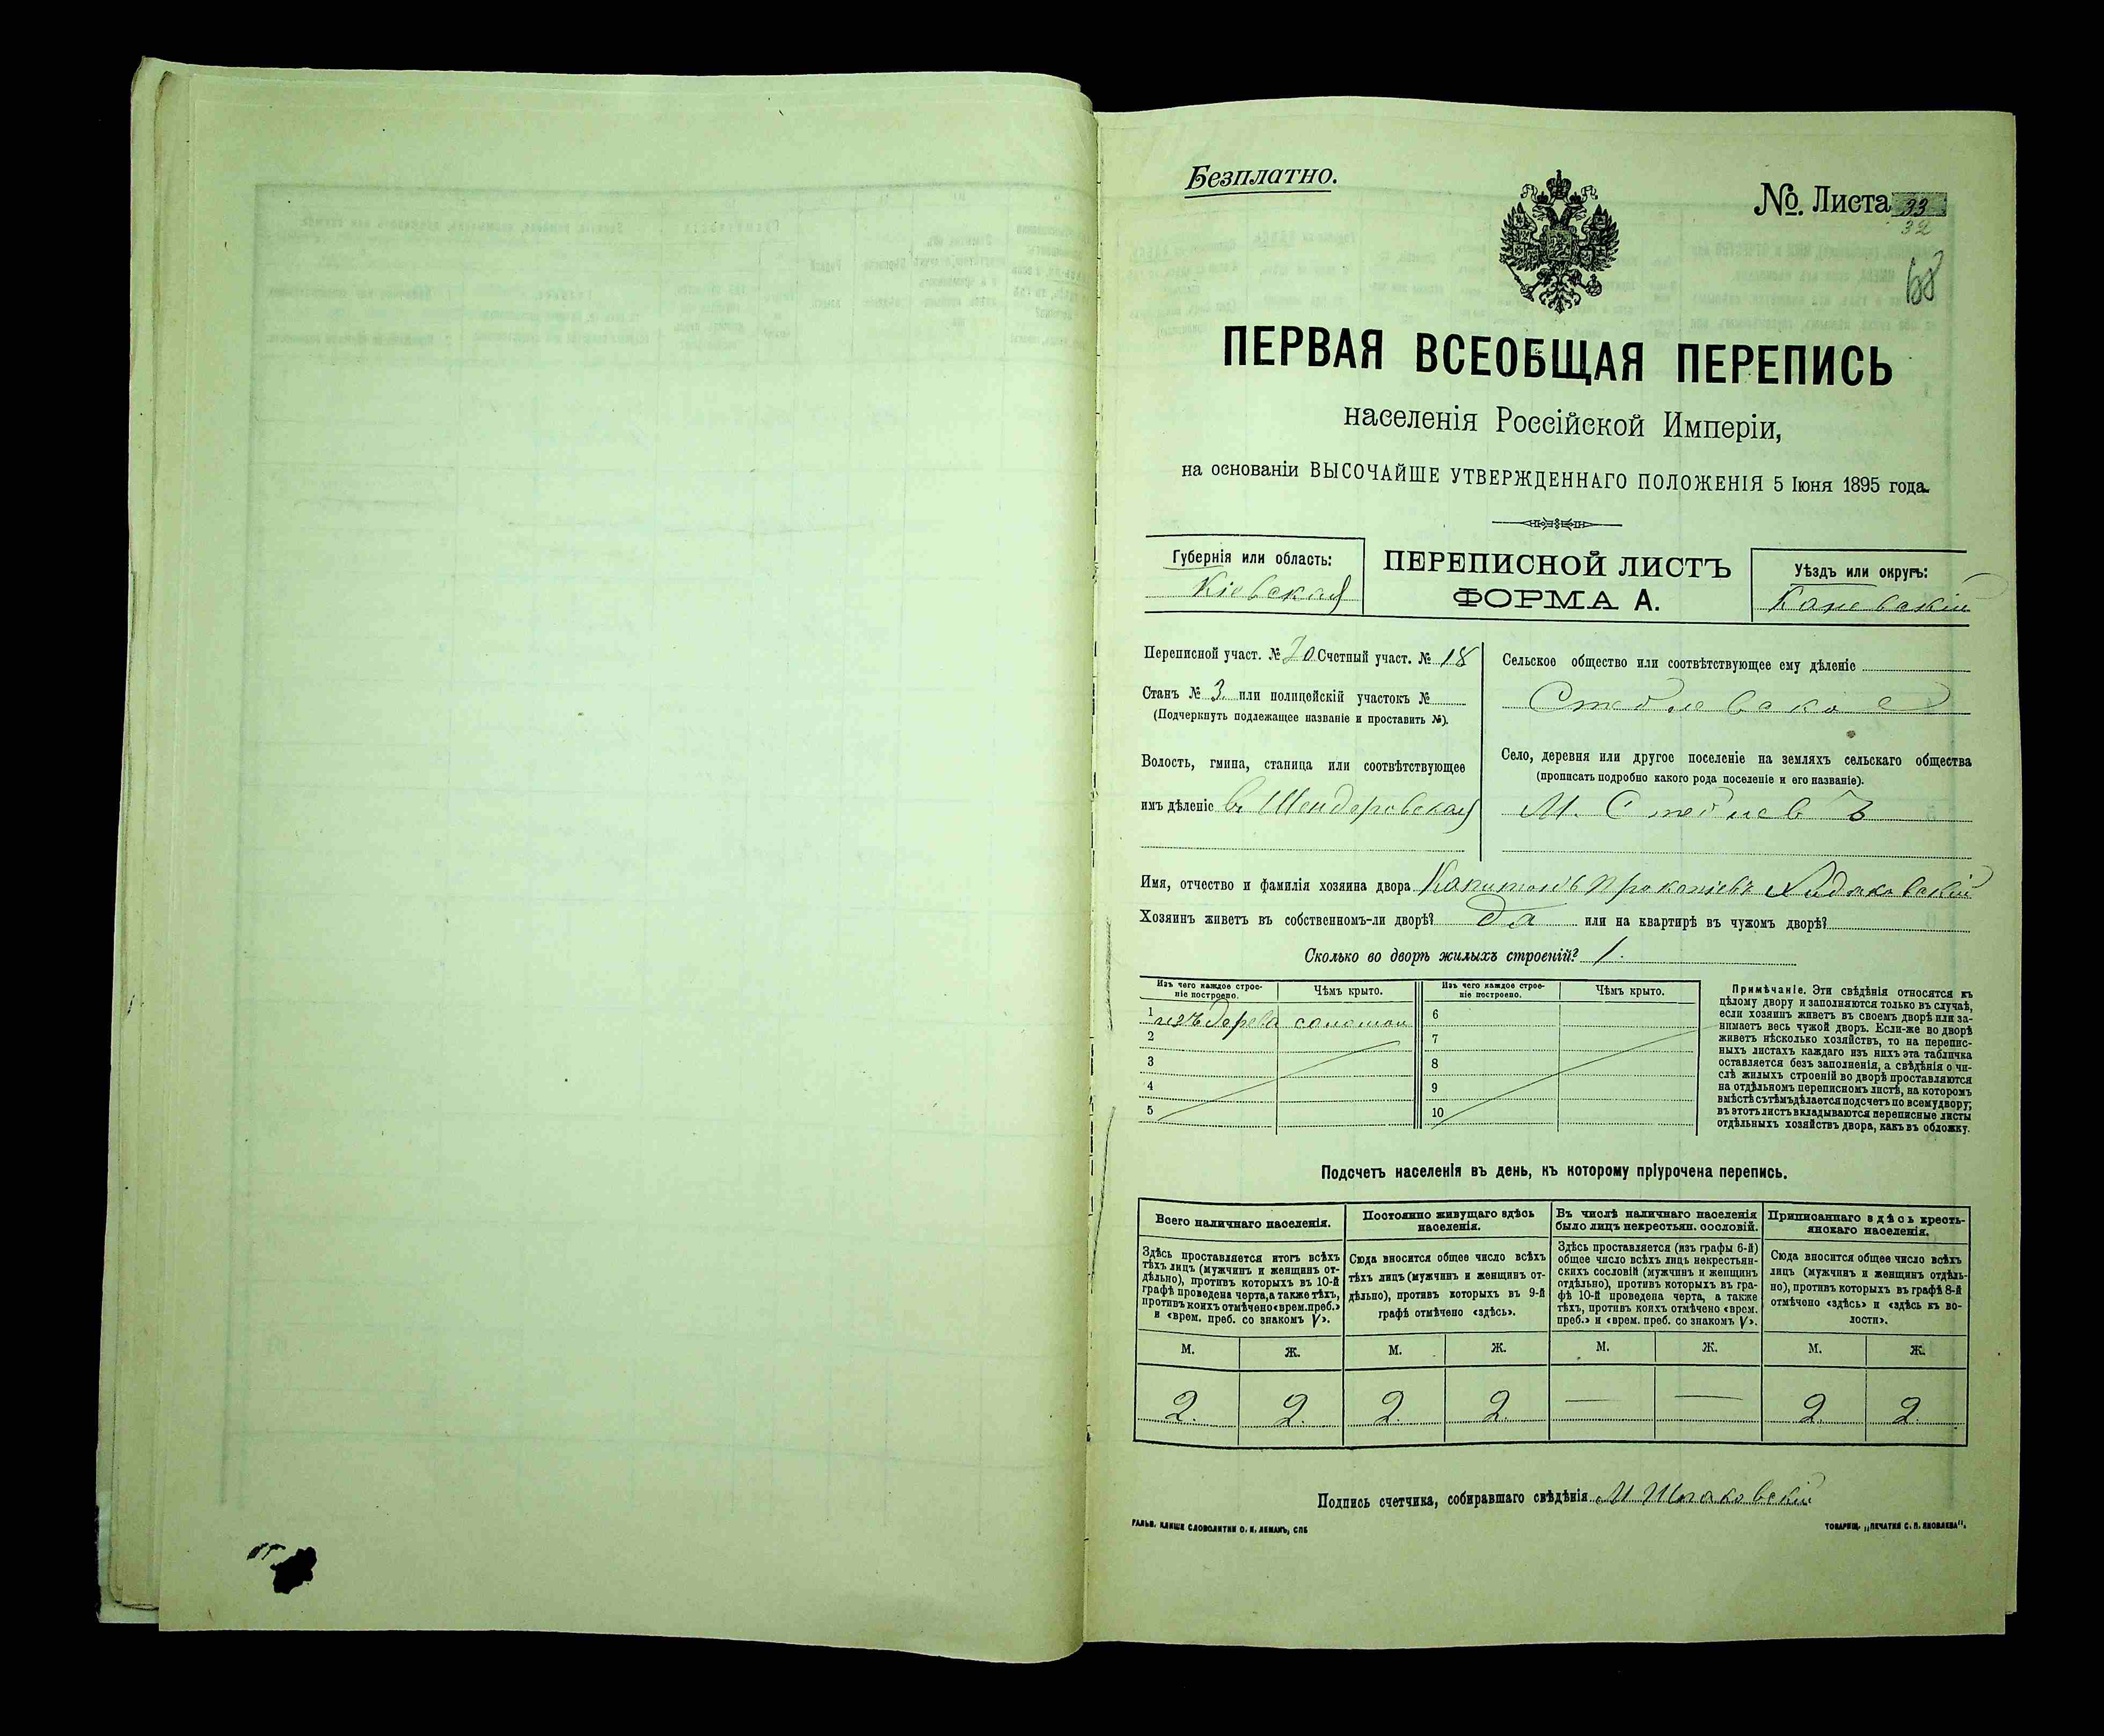 Безплатно.
№. Листа 33
32
68
ПЕРВАЯ ВСЕОБЩАЯ ПЕРЕПИСЬ
населенія Россійской Имперіи,
на основаніи ВЫСОЧАЙШЕ УТВЕРЖДЕННАГО ПОЛОЖЕНІЯ 5 Іюня 1895 года.
Губернія или область:
Кіевская
ПЕРЕПИСНОЙ ЛИСТЪ
ФОРМА А.
Уѣздъ или округъ:
Каневскій
Переписной участ. № 20 Счетный участ. № 18
Станъ № 3 или полицейскій участокъ №
(Подчеркнуть подлежащее названіе и проставить №).
Волость, гмина, станица или соотвѣтствующее
имъ дѣленіе в. Шендеровская
Сельское общество или соотвѣтствующее ему дѣленіе
Стеблевское
Село, деревня или другое поселеніе на земляхъ сельскаго общества
(прописать подробно какого рода поселеніе и его названіе).
М. Стеблевъ
Имя, отчество и фамилія хозяина двора Капитонъ Прокопіевъ
Хозяинъ живетъ въ собственномъ-ли дворѣ? да или на квартирѣ въ чужомъ дворѣ?
Сколько во дворѣ жилыхъ строеній? 1.
Изъ чего каждое строе-
ніе построено.
Чѣмъ крыто.
Изъ чего каждое строе-
ніе построено.
Чѣмъ крыто.
1 изъ дерева соломой
2
3
4
5
6
7
8
9
10
Примѣчаніе. Эти свѣдѣнія относятся къ
цѣлому двору и заполняются только въ случаѣ,
если хозяинъ живетъ въ своемъ дворѣ или за-
нимаетъ весь чужой дворъ. Если-же во дворѣ
живетъ нѣсколько хозяйствъ, то на перепис-
ныхъ листахъ каждаго изъ нихъ эта табличка
оставляется безъ заполненія, а свѣдѣнія о чи-
слѣ жилыхъ строеній во дворѣ проставляются
на отдѣльномъ переписномъ листѣ, на которомъ
вмѣстѣ съ тѣмъ дѣлается подсчетъ по всему двору;
въ этотъ листъ вкладываются переписные листы
отдѣльныхъ хозяйствъ двора, какъ въ обложку.
Подсчетъ населенія въ день, къ которому пріурочена перепись.
Всего наличнаго населенія.
Здѣсь проставляется итогъ всѣхъ
тѣхъ лицъ (мужчинъ и женщинъ от-
дѣльно), противъ которыхъ въ 10-й
графѣ проведена черта, а также тѣхъ,
противъ коихъ отмѣчено «врем. преб.»
и «врем. преб. со знакомъ V».
Постоянно живущаго здѣсь
населенія.
Сюда вносится общее число всѣхъ
тѣхъ лицъ (мужчинъ и женщинъ от-
дѣльно), противъ которыхъ въ 9-й
графѣ отмѣчено «здѣсь».
Въ числѣ наличнаго населенія
было лицъ некрестьян. сословій.
Здѣсь проставляется (изъ графы 6-й)
общее число всѣхъ лицъ некрестьян-
скихъ сословій (мужчинъ и женщинъ
отдѣльно), противъ которыхъ въ гра-
фѣ 10-й проведена черта, а также
тѣхъ, противъ коихъ отмѣчено «врем.
преб.» и «врем. преб. со знакомъ V».
Приписаннаго здѣсь кресть-
янскаго населенія.
Сюда вносится общее число всѣхъ
лицъ (мужчинъ и женщинъ отдѣль-
но), противъ которыхъ въ графѣ 8-й
отмѣчено «здѣсь» и «здѣсь къ во-
лости».
М. Ж. М. Ж. М. Ж. М. Ж.
2. 2. 2. 2. — — 2. 2.
Подпись счетчика, собиравшаго свѣдѣнія
ГАЛЬВ. КЛИШЕ СЛОВОЛИТНИ О. И. ЛЕМАНЪ, СПБ
ТОВАРИЩ. „ПЕЧАТНЯ С. П. ЯКОВЛЕВА".